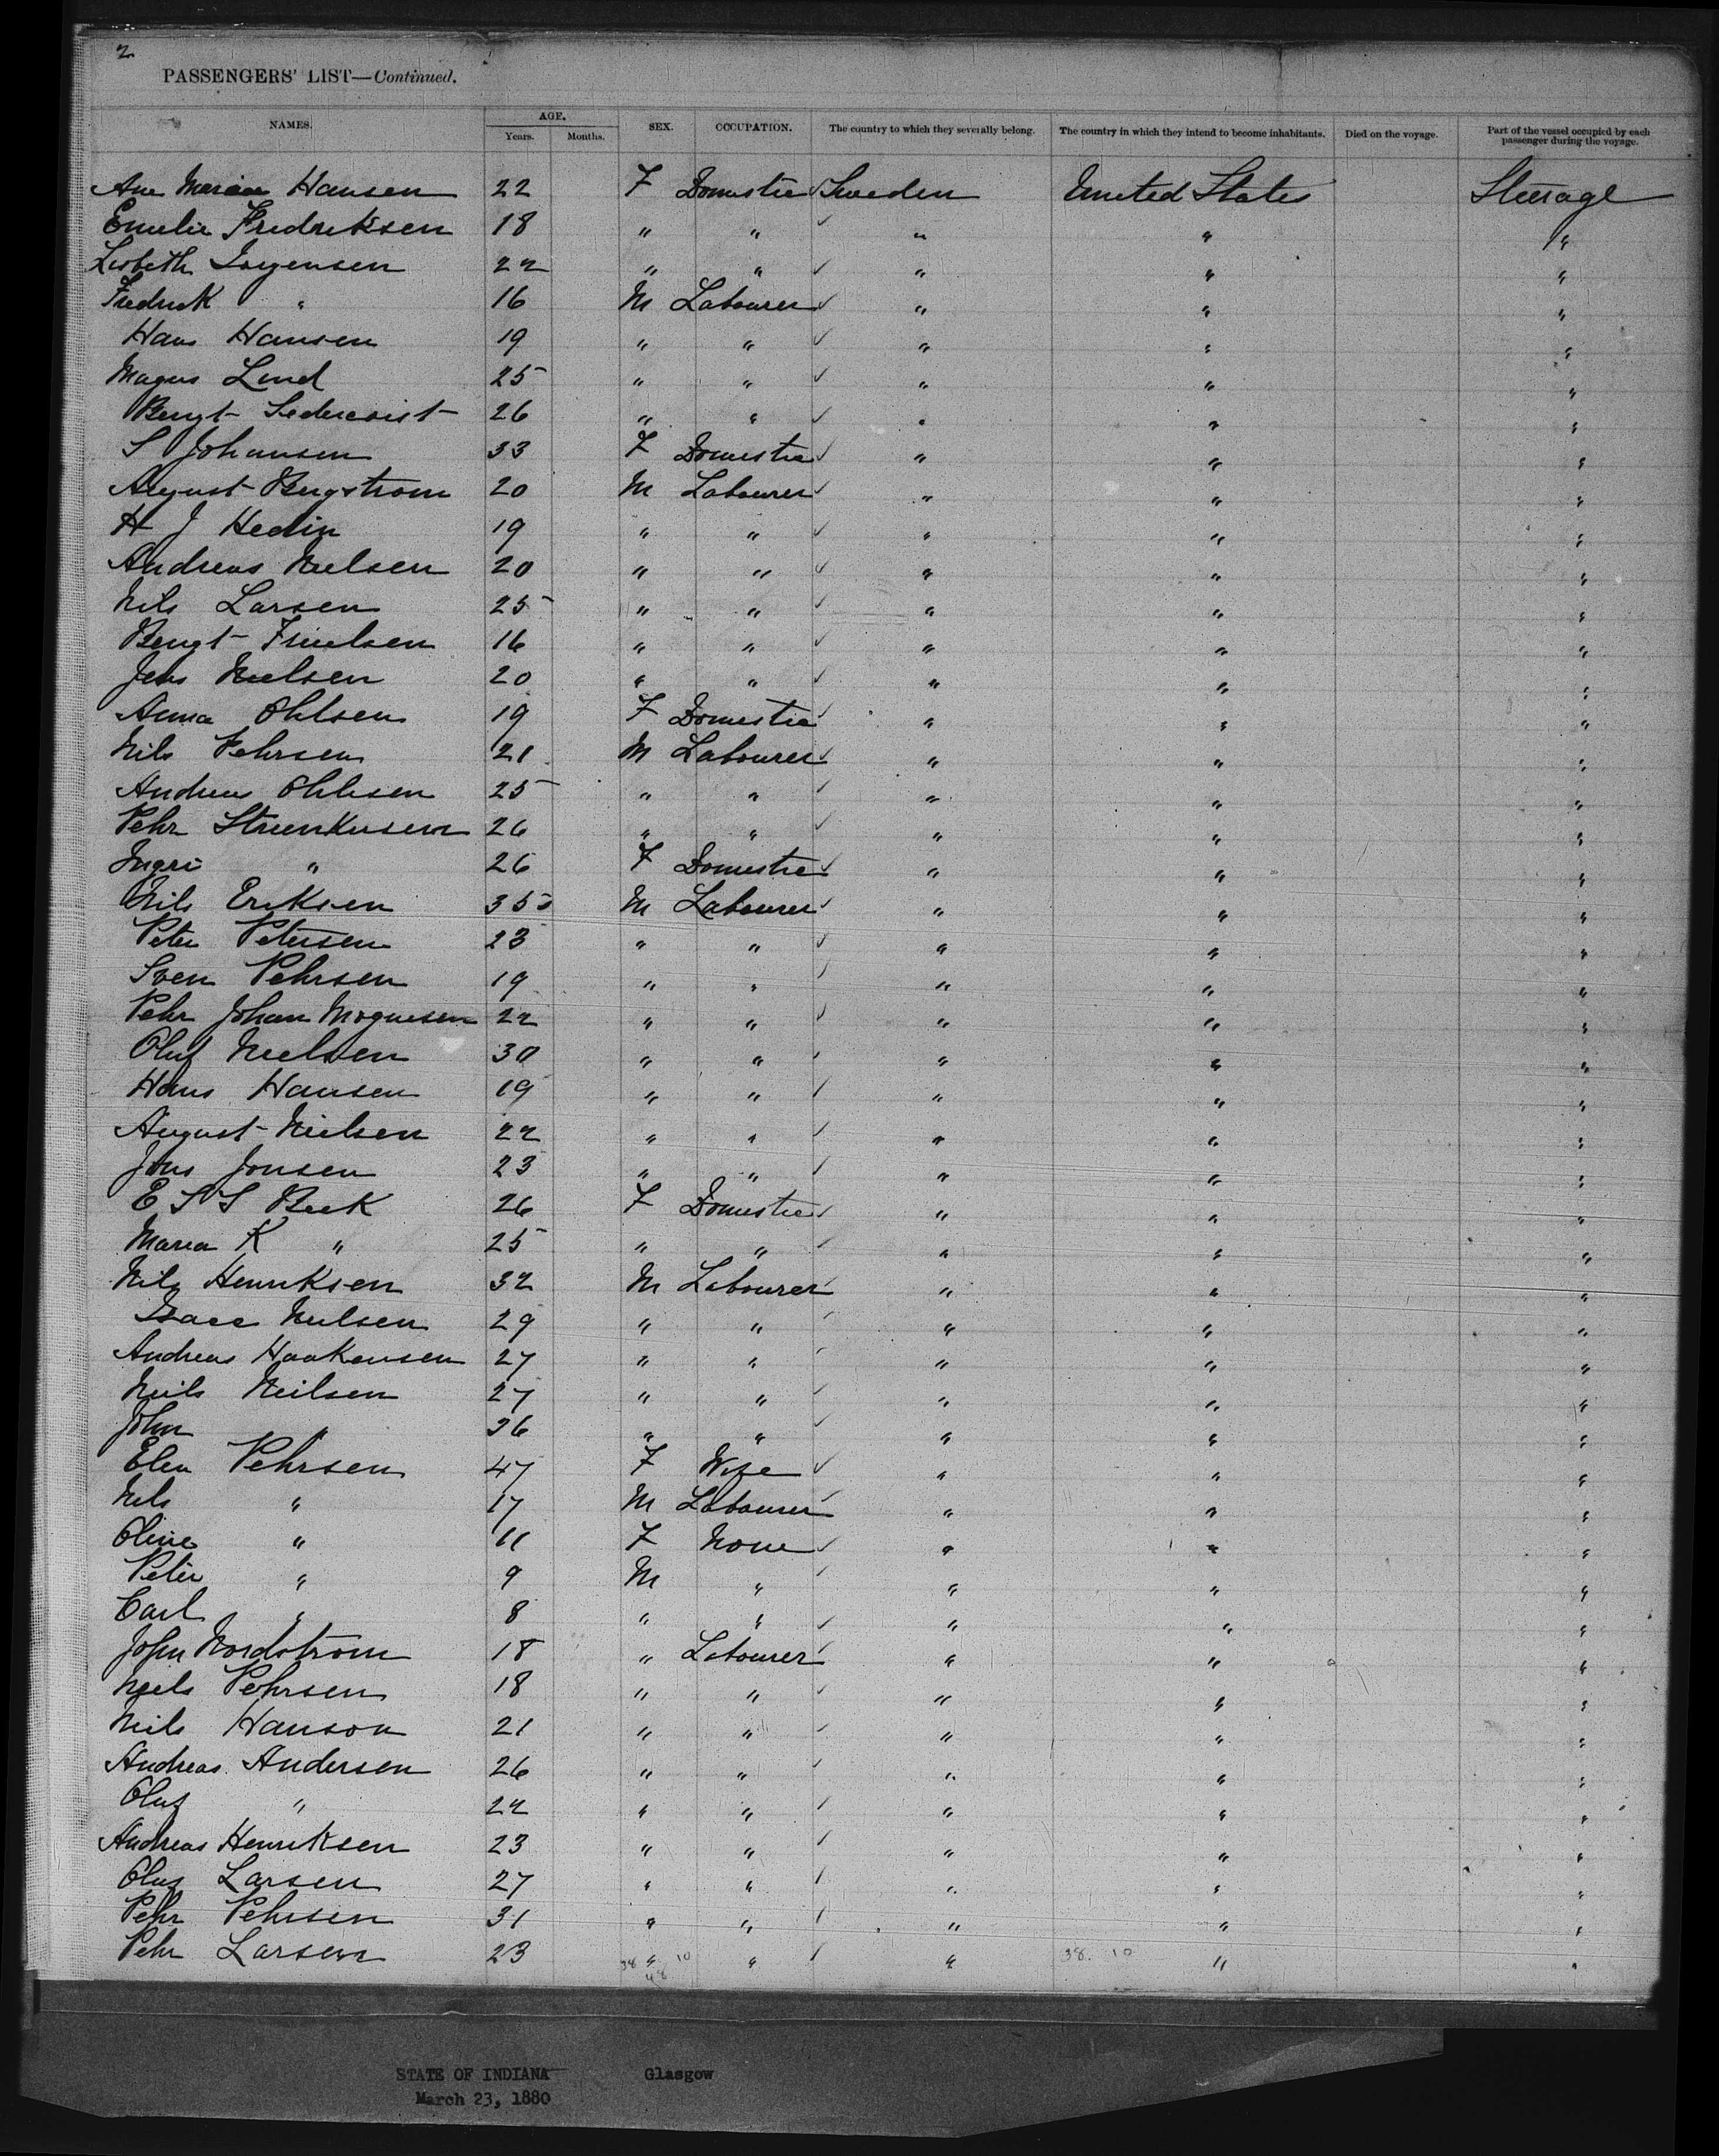 2
PASSENGERS' LIST—Continued.
NAMES. AGE. Years. Months. SEX. OCCUPATION. The country to which they severally belong. The country in which they intend to become inhabitants. Died on the voyage. Part of the vessel occupied by each passenger during the voyage.
Ane Hansen 22 F Domestic Sweden United States Steerage
Emilie Fredriksen 18 " " ✓ " " "
Lisbeth Jorgensen 22 " " ✓ " " "
Fredrick " 16 M Labourer ✓ " " "
Hans Hansen 19 " " ✓ " " "
Magus Lind 25 " " ✓ " " "
Bengt 26 " " ✓ " " "
S Johansen 33 F Domestic ✓ " " "
August Bergstrom 20 M Labourer ✓ " " "
H J Hedin 19 " " ✓ " " "
Andreas Nielsen 20 " " ✓ " " "
Nils Larsen 25 " " ✓ " " "
Bengt 16 " " ✓ " " "
Jens Nielsen 20 " " ✓ " " "
Anna Ohlsen 19 F Domestic ✓ " " "
Nils Pehrsen 21 M Labourer ✓ " " "
Andreas Ohlsen 25 " " ✓ " " "
Pehr 26 " " ✓ " " "
Ingri " 26 F Domestic ✓ " " "
Nils Eriksen 35 M Labourer ✓ " " "
Peter Petersen 23 " " ✓ " " "
Sven Pehrsen 19 " " ✓ " " "
Pehr Johan Mognesen 22 " " ✓ " " "
Oluf Nielsen 30 " " ✓ " " "
Hans Hansen 19 " " ✓ " " "
August Nielsen 22 " " ✓ " " "
Jons Jonsen 23 " " ✓ " " "
E S S Beck 26 F Domestic ✓ " " "
Maria K " 25 " " ✓ " " "
Nils Henriksen 32 M Labourer ✓ " " "
Isaac Nielsen 29 " " ✓ " " "
Andreas Haakensen 27 " " ✓ " " "
Neils Neilsen 27 " " ✓ " " "
John " 26 " " ✓ " " "
Elen Pehrsen 47 F Wife ✓ " " "
Nils " 17 M Labourer ✓ " " "
Oline " 11 F None ✓ " " "
Peter " 9 M " ✓ " " "
Carl " 8 " " ✓ " " "
John Nordstrom 18 " Labourer ✓ " " "
Niels Pehrsen 18 " " ✓ " " "
Nils Hanson 21 " " ✓ " " "
Andreas Andersen 26 " " ✓ " " "
Oluf " 22 " " ✓ " " "
Andreas Henriksen 23 " " ✓ " " "
Oluf Larsen 27 " " ✓ " " "
Pehr Pehrsen 31 " " ✓ " " "
Pehr Larsen 23 " " ✓ " " "
38 10 38. 10
48
STATE OF INDIANA Glasgow
March 23, 1880